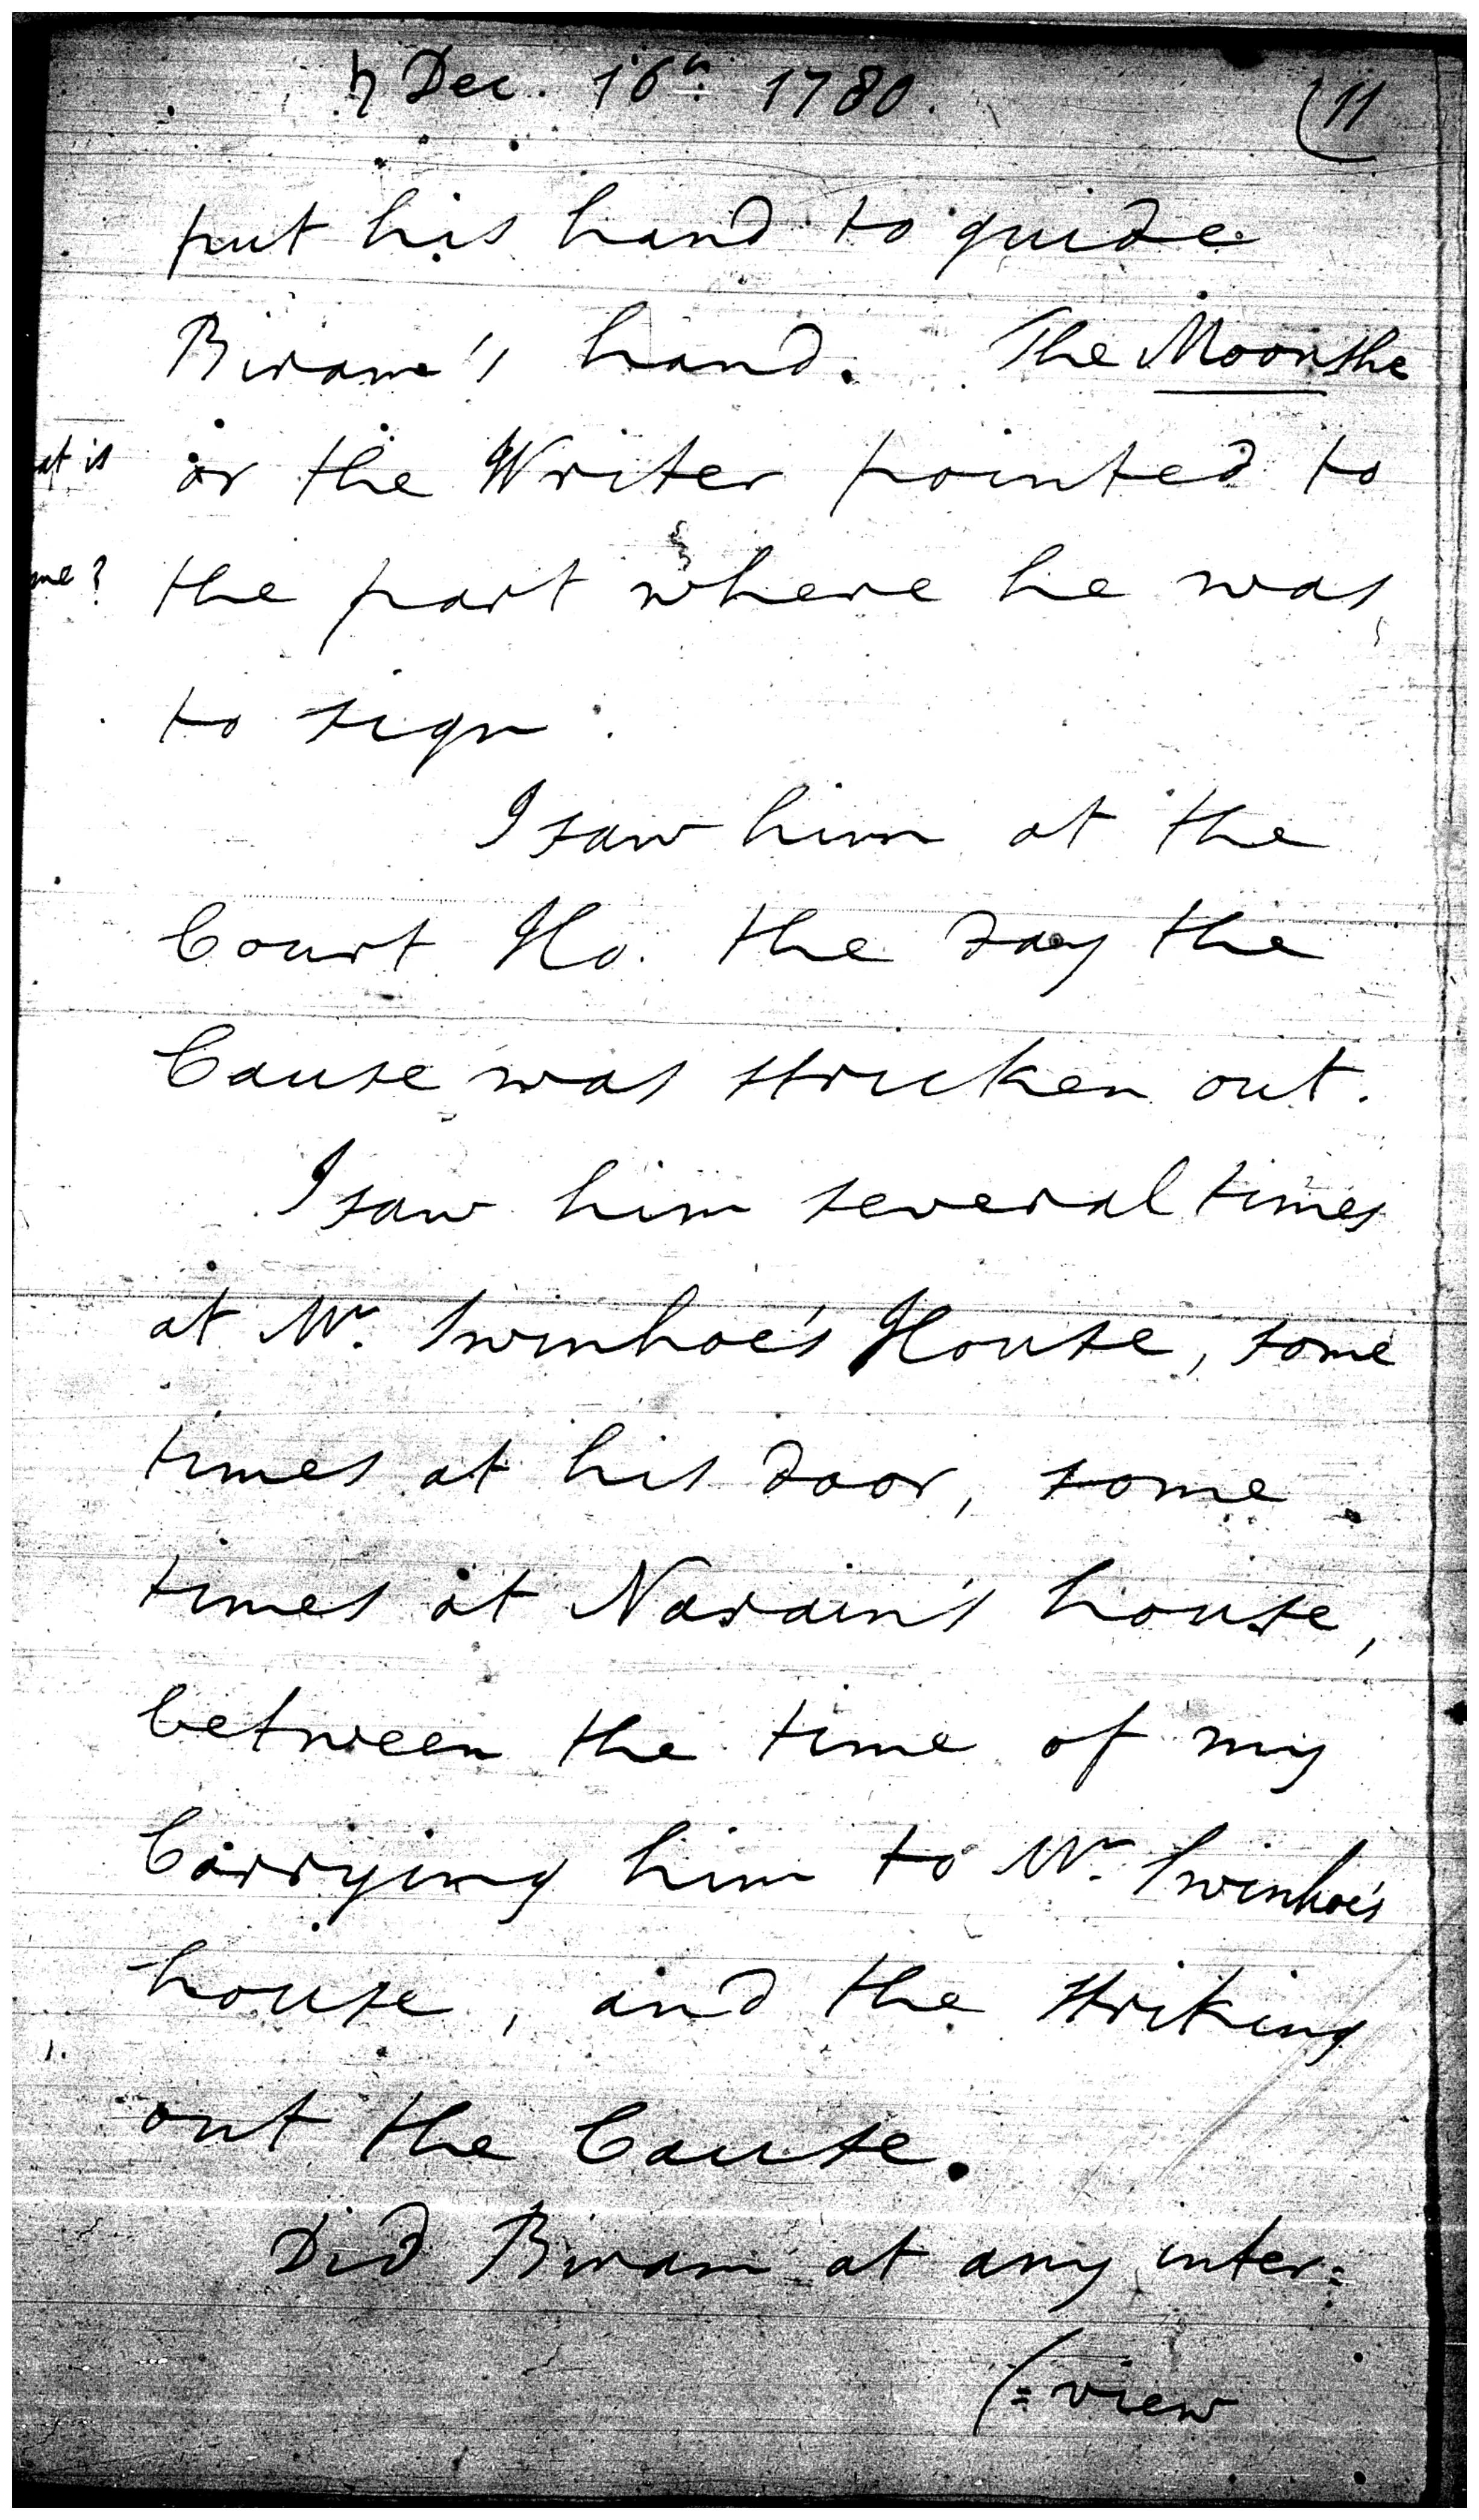 ♄ Dec. 16th. 1780.
(11
put his hand to guide
Birame's hand. The Moonshe
at is
or the Writer pointed to
me?
the part where he was
to sign.
I saw him at the
Court Ho. the day the
Cause was stricken out.
I saw him several times
at Mr. Swinhoe's House, some
times at his door, some
times at Narain's house,
between the time of my
Carrying him to Mr. Swinhoe's
house, and the striking
out the Cause.
Did Biram at any inter=
(=view